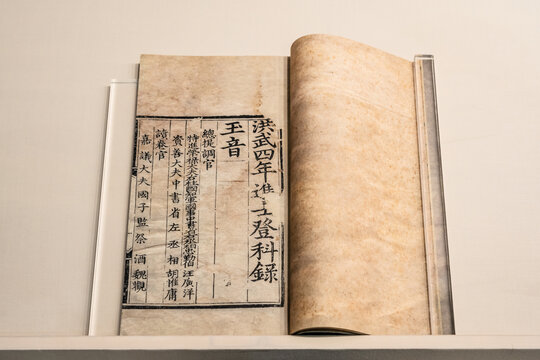 洪武四年進士登科錄
玉音
總提調官
特進榮祿大夫右柱國同知軍國事中書右丞相忠勤伯汪廣洋
資善大夫中書省左丞相胡惟庸
讀卷官
嘉議大夫國子監祭酒魏觀